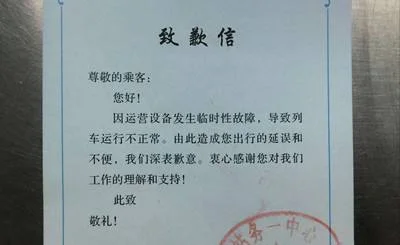 致歉信
尊敬的乘客:
您好!
因运营设备发生临时性故障，导致列
车运行不正常。由此造成您出行的延误和
不便，我们深表歉意。衷心感谢您对我们
工作的理解和支持!
此致
敬礼!
站务一中心